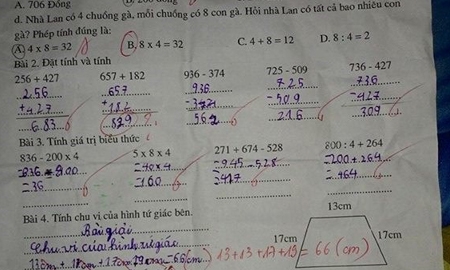 A. 706 Đồng
d. Nhà Lan có 4 chuồng gà, mỗi chuồng có 8 con gà. Hỏi nhà Lan có tất cả bao nhiêu con
gà? Phép tính đúng là:
A. 4 x 8 = 32 B. 8 x 4 = 32 C. 4 + 8 = 12 D. 8 : 4 = 2
Bài 2. Đặt tính và tính
256 + 427 657 + 182 936 - 374 725 - 509 736 - 427
256 657 936 725 736
+427 +182 -509 -427
683 562 216 309
Bài 3. Tính giá trị biểu thức
836 - 200 x 4 5 x 8 x 4 271 + 674 - 528 800 : 4 + 264
=836 - 800 =40 x 4 =945 - 528 =200 + 264
=36 =160 =417 =464
Bài 4. Tính chu vi của hình tứ giác bên.
13cm
Bài giải
Chu vi của hình tứ giác
17cm 17cm
13+13+17+13 = 66 (cm)